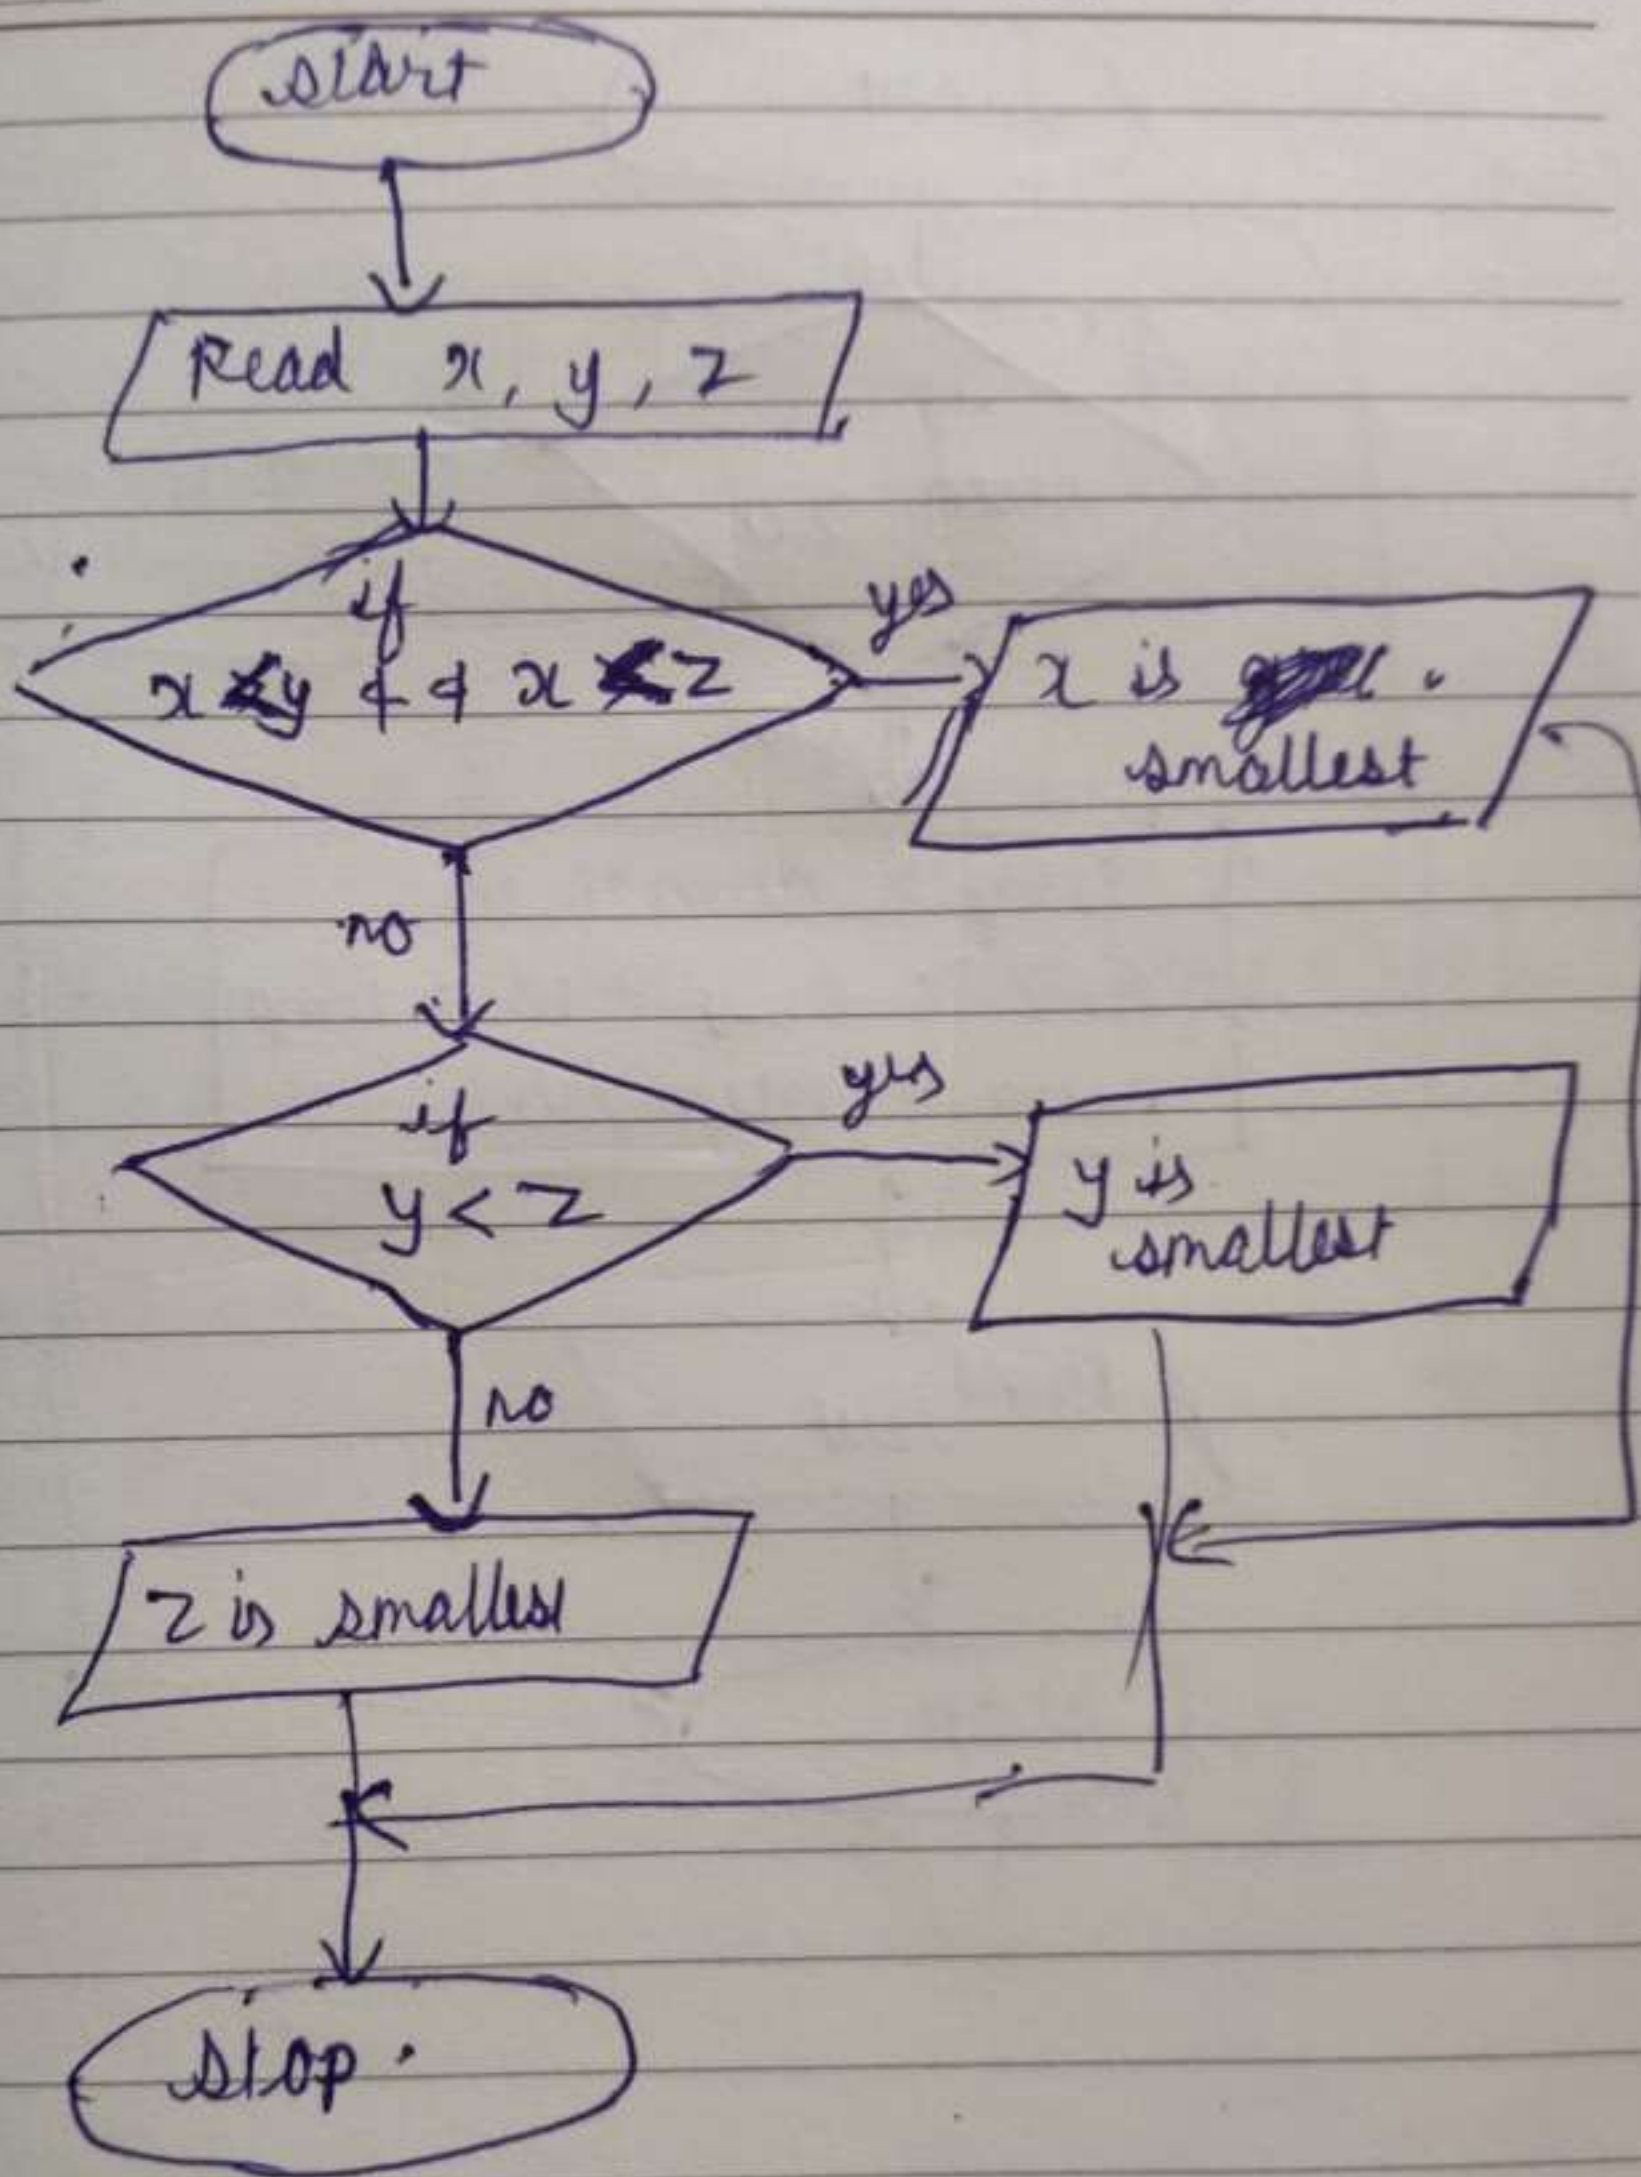 start
Read x, y, z
if
x<y && x<z
yes
x is
smallest
no
if
y<z
yes
y is
smallest
no
z is smallest
stop.